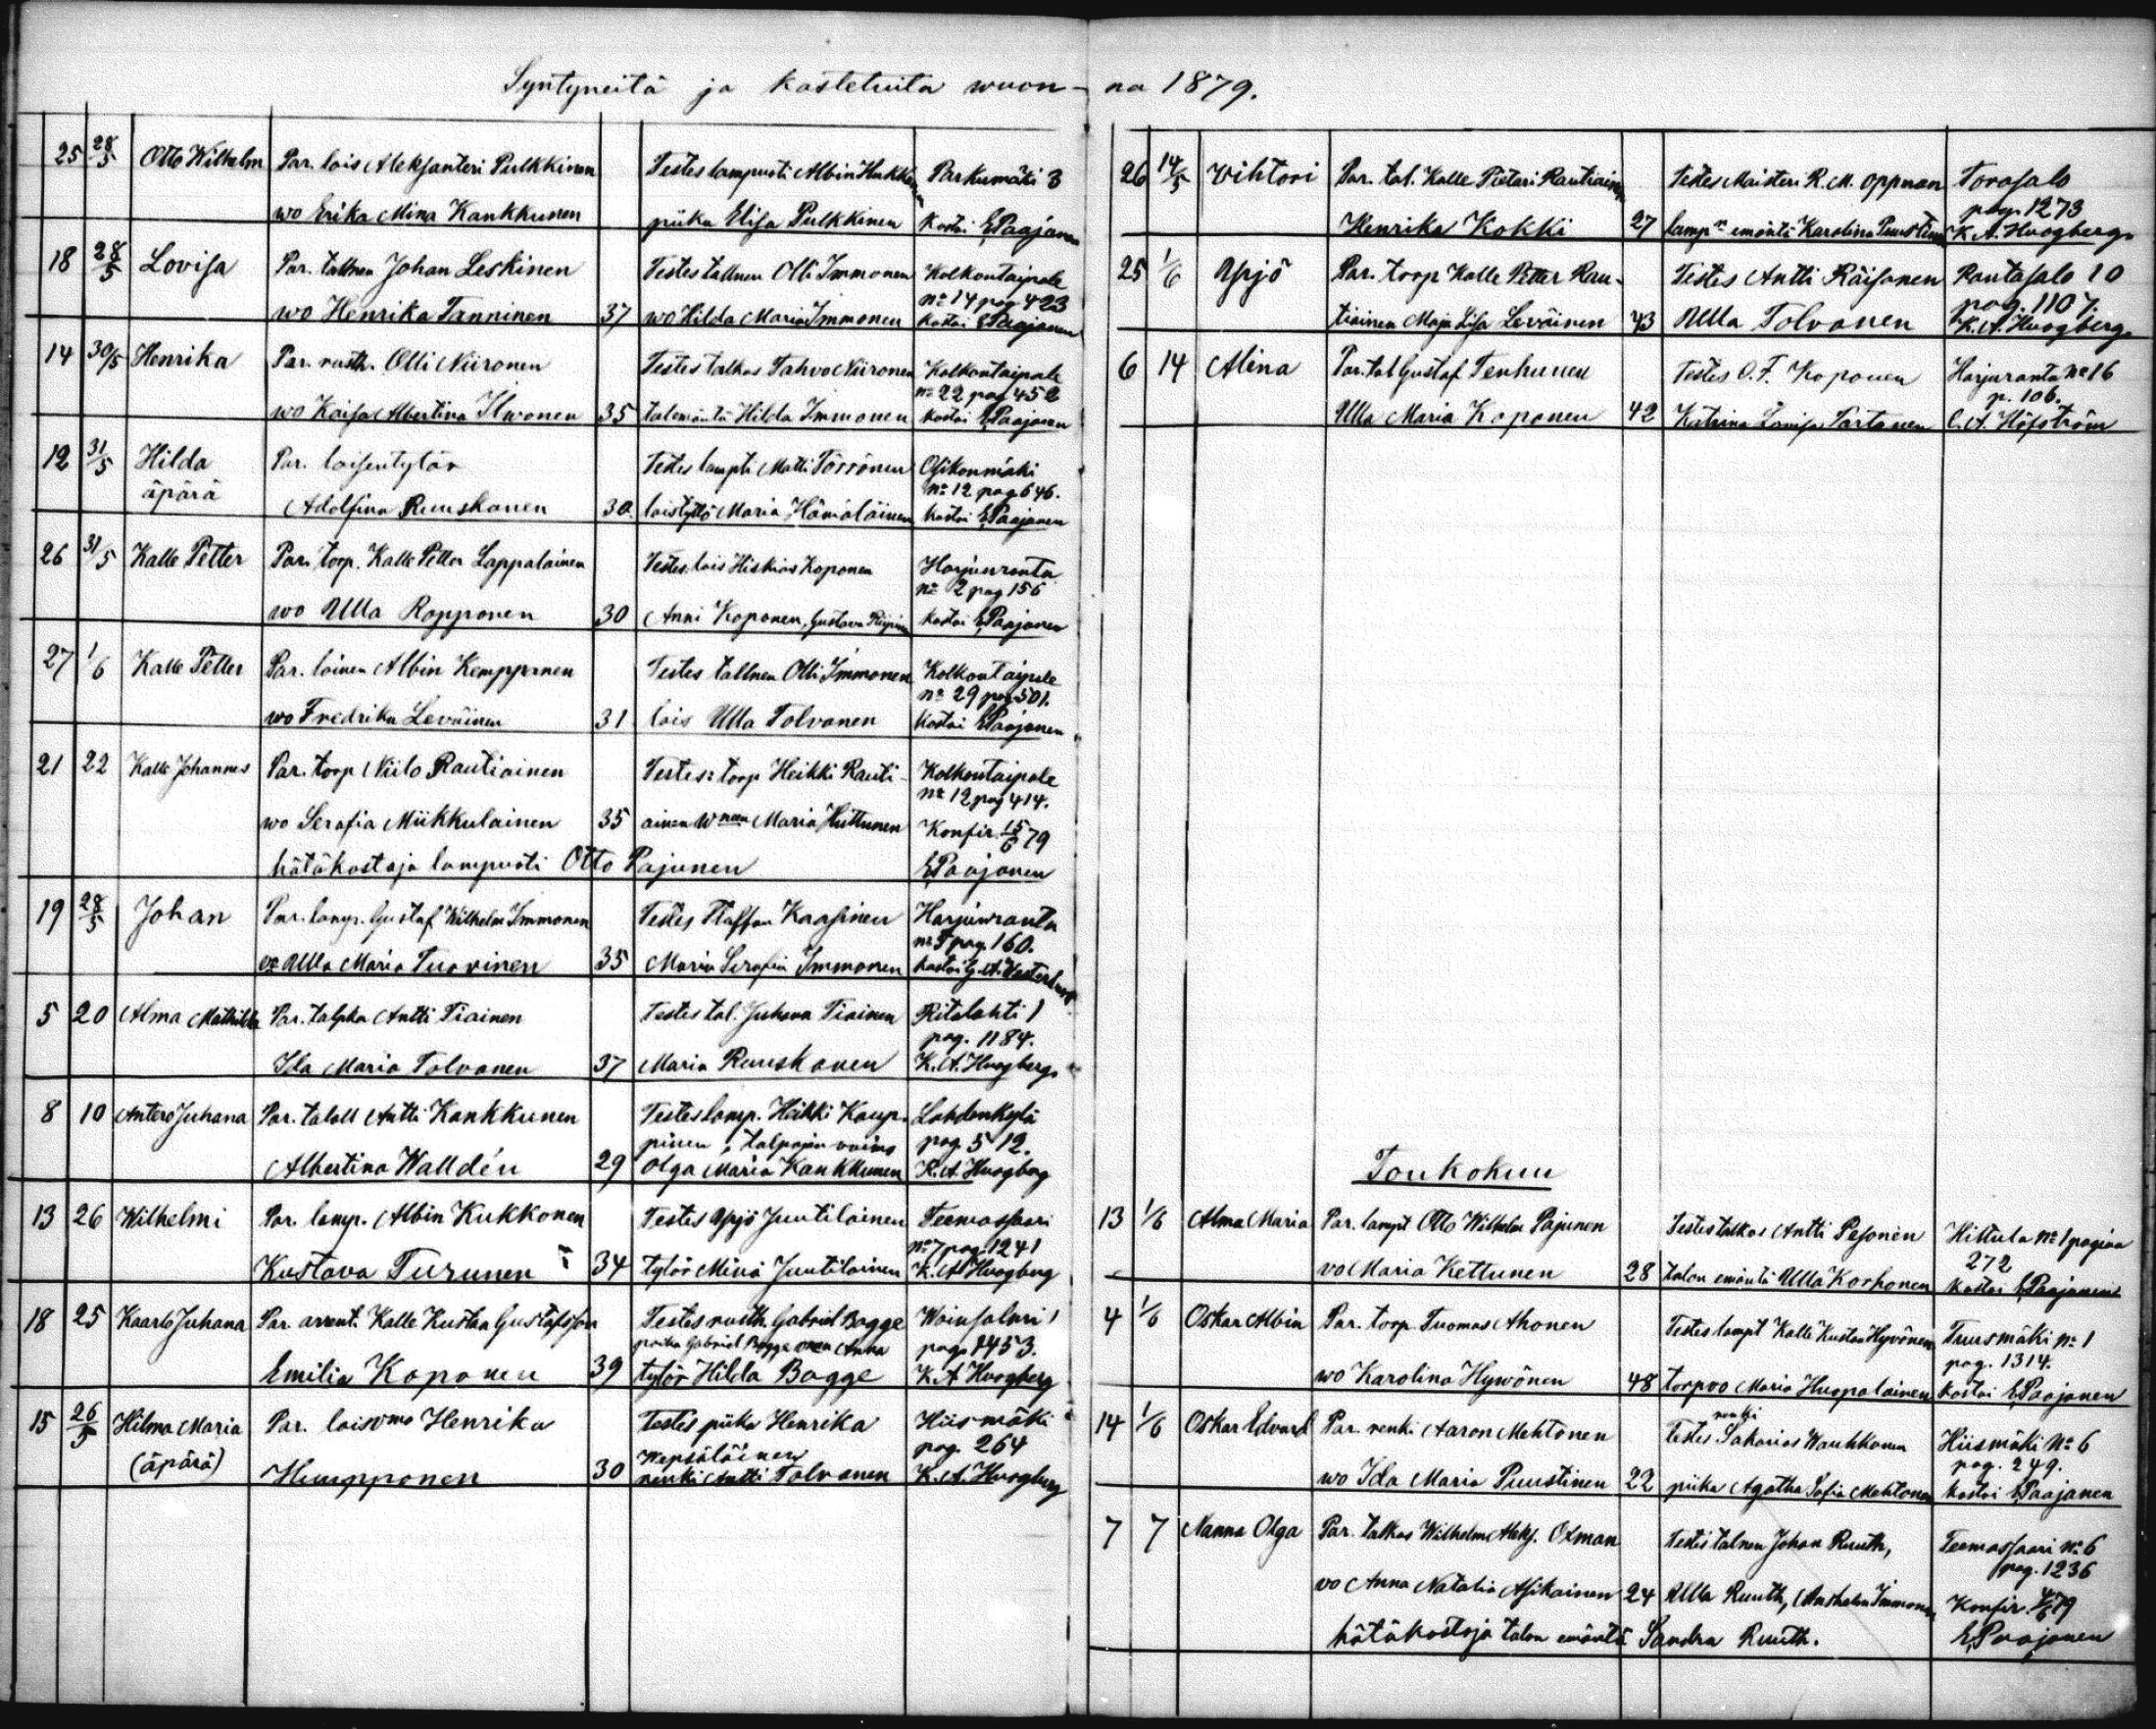 Syntyneitä ja kastetuita wuon-na 1879.
25 28/5 Otto Wilhelm Par. lois Aleksanteri Pulkkinen Testes lampuoti Albin Hukkinen Parkumäki 3
wo Erika Mina Kankkunen piika Elisa Pulkkinen kastoi E Paajanen
18 28/5 Lovisa Par. tallnen Johan Leskinen Testes tallnen Olli Immonen Kolkontaipale
nº 14 pag 423
wo Henrika Tanninen 37 wo Hilda Maria Immonen kastoi E Paajanen
14 30/5 Henrika Par. rusth. Olli Niironen Testes talkas Tahvo Niironen Kolkontaipale
nº 22 pag 452
wo Kaisa Albertina Ilwonen 35 talemäntä Hilda Immonen kastoi E Paajanen
12 31/5 Hilda Par. loisentytär Testes lampti Matti Törrönen Osikonmäki
äpärä nº 12 pag 646.
Adolfina Ruuskanen 30. loistyttö Maria Hämäläinen kastoi E Paajanen
26 31/5 Kalle Petter Par. torp. Kalle Petter Lappalainen Testes lois Hiskias Koponen Harjunranta
nº 2 pag 156
wo Ulla Ropponen 30 Anni Koponen, Gustava kastoi E Paajanen
27 1/6 Kalle Petter Par. loinen Albin Kempponen Testes tallnen Olli Immonen Kolkontaipale
nº 29 pag 501.
wo Fredrika Leväinen 31 lois Ulla Tolvanen kastoi E Paajanen
21 22 Kalle Johannes Par. torp Niilo Rautiainen Testes: torp Heikki Rauti- Kolkontaipale
nº 12 pag 414.
wo Serafia Miikkulainen 35 ainen w Maria Huttunen Konfir. 15/6 79
hätäkastaja lampuoti Otto Pajunen E Paajanen
19 28/5 Johan Par. lamp. Gustaf Wilhelm Immonen Testes Staffan Kaasinen Harjunranta
nº 5 pag. 160.
vo Ulla Maria Tuovinen 35 Maria Serafia Immonen kastoi G. A. Westerlund
5 20 Alma Mathilda Par. talpka Antti Tiainen Testes tal. Juhana Tiainen Ritalahti 1
pag. 1184.
Ida Maria Tolvanen 37 Maria Ruuskanen K. A. Hougberg
8 10 Antero Juhana Par. taloll Antti Kankkunen Testes lamp. Heikki Kaup- Lahdenkylä
pinen, talpojan vaimo pag. 512.
Albertina Walldén 29 Olga Maria Kankkunen K. A. Hougberg
13 26 Wilhelmi Par. lamp. Albin Kukkonen Testes Yrjö Juutilainen Teemassaari
nº 7 pag. 1241
Kustava Turunen 34 tytär Mina Juutilainen K. A. Hougberg
18 25 Kaarlo Juhana Par. arrent. Kalle Kustaa Gustafsson Testes rusth. Gabriel Bagge Woinsalmi 1
poika Gabriel Bagge Anna pag. 1453.
Emilia Koponen 39 tytär Hilda Bagge K. A Hougberg
15 26/5 Hilma Maria Par. lois Henrika Testes piika Henrika Hiismäki
(äpärä) Wepsäläinen pag. 264
Humpponen 30 renki Antti Tolvanen K. A. Hougberg
26 14/5 Vihtori Par. tal. Kalle Pietari Rautiainen Testes Maisteri R. M. Oppman Torasalo
pag. 1273
Henrika Kokki 27 lamp emäntä Karolina Puustinen K. A. Hougberg
25 1/6 Yrjö Par. torp Kalle Petter Rau- Testes Antti Räisänen Rantasalo 10
pag. 1107.
tiainen Maja Lisa Leväinen 43 Ulla Tolvanen K. A. Hougberg
6 14 Alina Par. tal Gustaf Tenhunen Testes O. F. Koponen Harjuranta nº 16
p. 106.
Ulla Maria Koponen 42 Katrina Lovisa Partanen C. A. Höfström
Toukokuu
13 1/6 Alma Maria Par. lampt Otto Wilhelm Pajunen Testes talkas Antti Pesonen Hittula nº 1 pagina
272
vo Maria Kettunen 28 talon emäntä Ulla Korhonen kastoi E Paajanen
4 1/6 Oskar Albin Par. torp. Tuomas Ahonen Testes lampt Kalle Kustaa Hyvönen Tuusmäki nº 1
pag. 1314.
wo Karolina Hywönen 48 torpvo Maria Huopalainen kastoi E Paajanen
14 1/6 Oskar Edvard Par. renki Aaron Mehtonen Testes renki Sakarias Wauhkonen Hiismäki nº 6
pag. 249.
wo Ida Maria Puustinen 22 piika Agatha Sofia Mehtonen kastoi E Paajanen
7 7 Nanna Olga Par. talkas Wilhelm Aleks. Oxman Testes talnen Johan Ruuth, Teemassaari nº 6
pag. 1236
vo Anna Natalia Asikainen 24 Ulla Ruuth, Immonen Konfir. 79
hätäkastaja talon emäntä Sandra Ruuth. E Paajanen